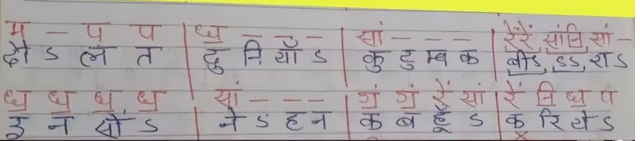 म - प प | ध - - - | सां - - - | रेंरें सांनि सां -
दौ ऽ ल त | दु नि याँ ऽ | कु टु म्ब क | बीऽ ऽऽ राऽ
ध ध ध ध | सां - - - | गं गं रें सां | रें नि ध प
इ न सों ऽ | ने ऽ ह न | क ब हूँ ऽ | क रि यो ऽ